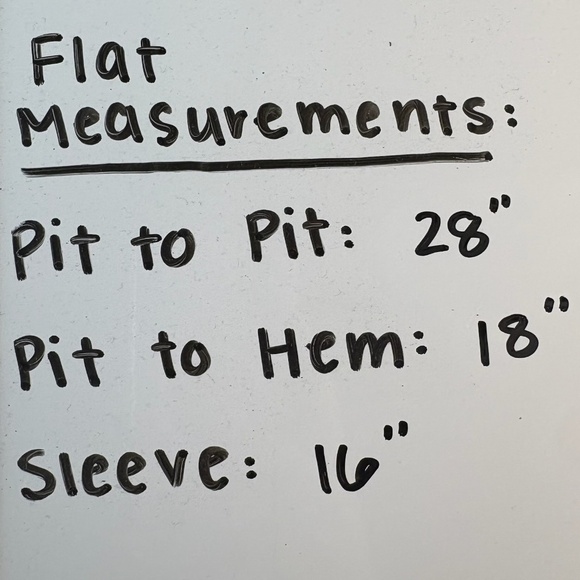 Flat
Measurements:
Pit to Pit: 28"
Pit to Hem: 18"
Sleeve: 16"